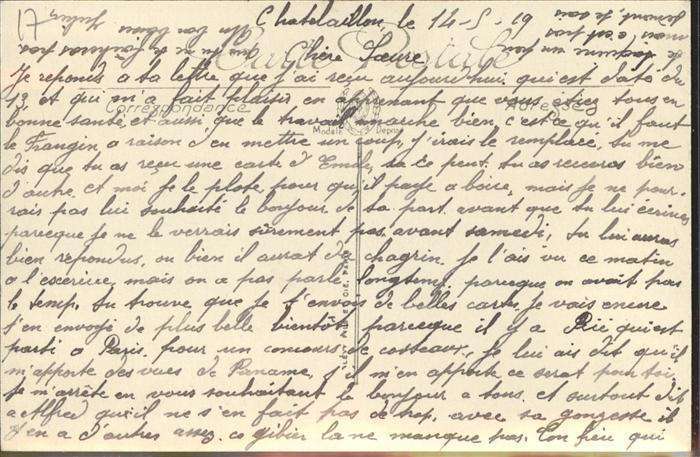 17
Chatelaillon le 14-5-19
Chère Sœur
Carte Postale
Je reponds a ta lettre que j'ai reçu aujourd'hui qui est daté du
12 et qui m'a fait plaisir en apprenant que vous etiez tous en
Correspondance
bonne santé, et aussi que le travail marche bien, c'est ce qu'il faut
Modèle Déposé
le Frangin a raison d'en mettre un coup, j'irais le remplace, tu me
dis que tu as reçu une carte d'Emile, sa ce peut, tu as recevras bien
d'autre et moi je le plote, pour qu'il paye a boire, mais je ne pour-
rais pas lui souhaité le bonjour de ta part avant que tu lui écrives
parceque je ne le verrais sûrement pas avant samedi, tu lui auras
bien repondus, ou bien il aurat du chagrin. Je l'ais vu ce matin
a l'exercice, mais on a pas parlé longtemp, parceque on avait pas
le temp. Tu trouve que je t'envois de belles carte, je vais encore
t'en envoyé de plus belle bientôt, parceque il y a Rié qui est
parti a Paris, pour un concours de costeaux, je lui ais dit qu'il
m'apporte des vues de Paname, s'il m'en apporte ce serat pour toi,
Je m'arrête en vous souhaitant le bonjour a tous, et surtout dit
a Alfred qu'il ne s'en fait pas de trop, avec sa gonzesse il
y en a d'autres assez, ce gibier la ne manque pas. Ton frère qui